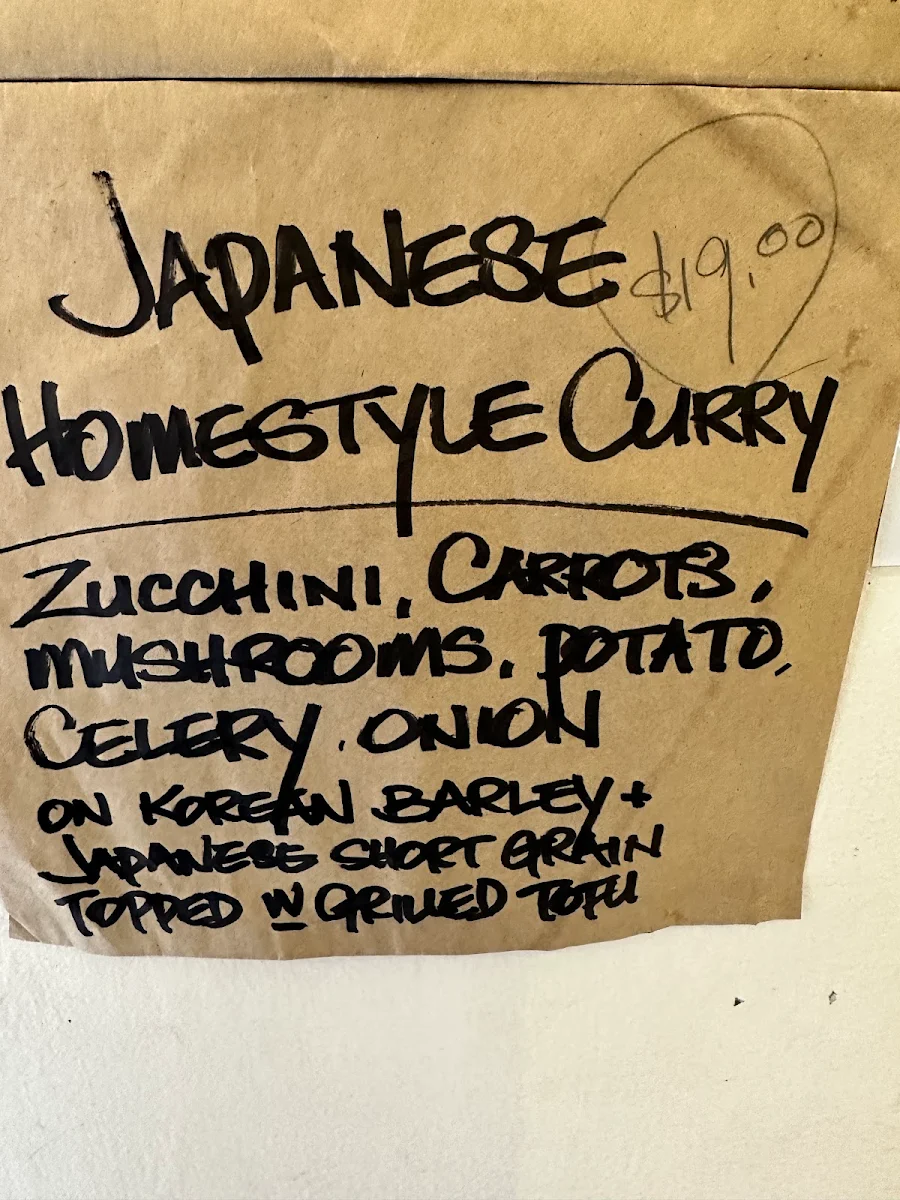 JAPANESE $19.00
HOMESTYLE CURRY
ZUCCHINI, CARROTS,
MUSHROOMS, POTATO,
CELERY, ONION
ON KOREAN BARLEY +
JAPANESE SHORT GRAIN
TOPPED W GRILLED TOFU